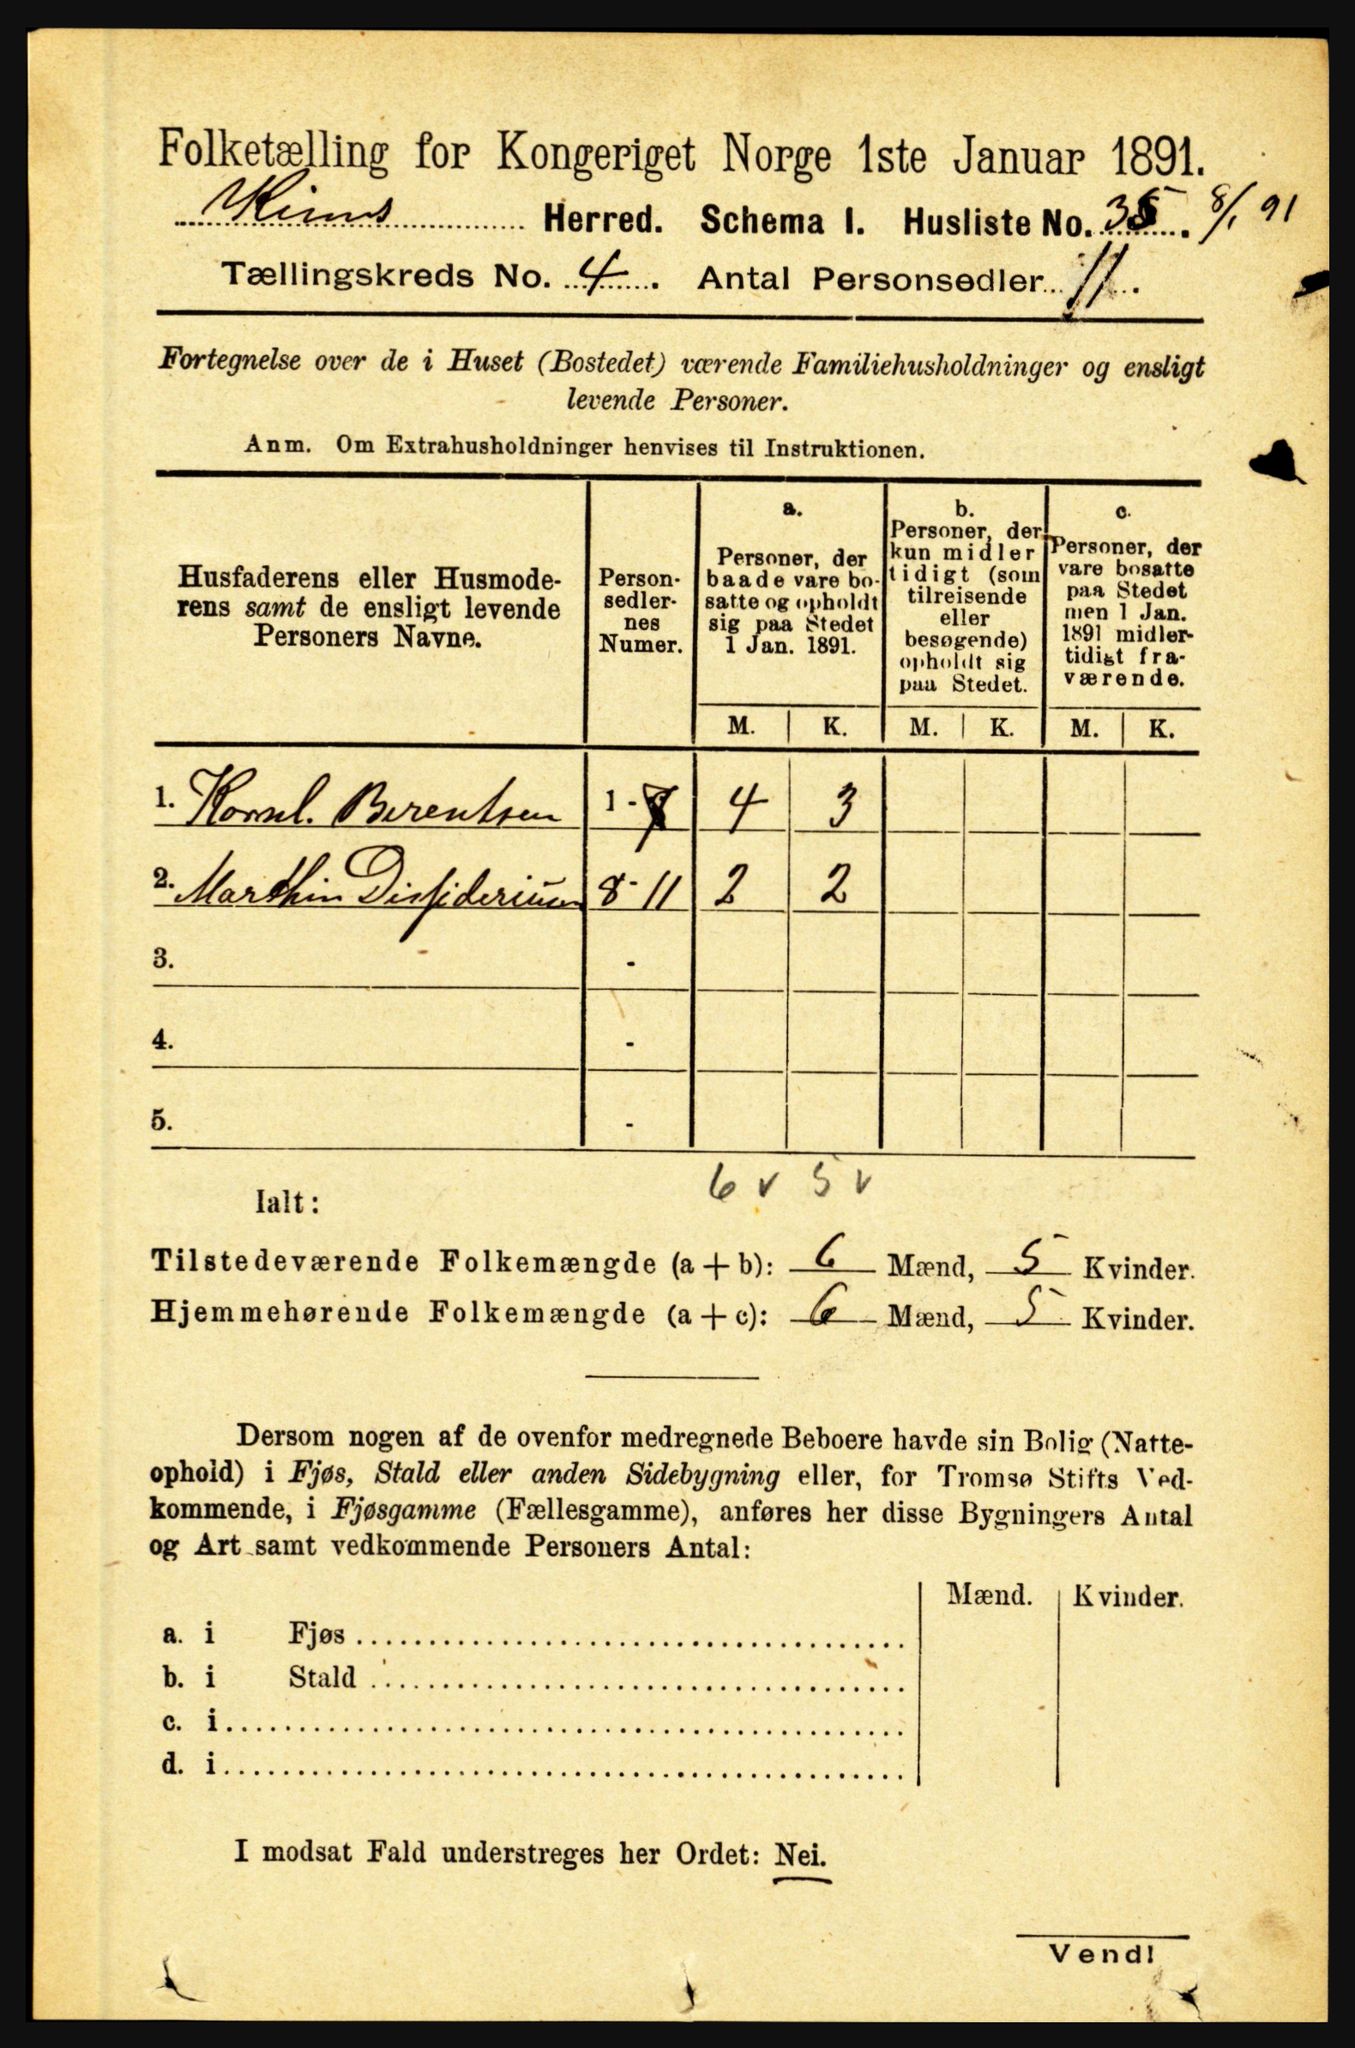 Folketælling for Kongeriget Norge 1ste Januar 1891.
Kinns Herred. Schema I. Husliste No. 35. 8/1 91
Tællingskreds No. 4. Antal Personsedler 11.
Fortegnelse over de i Huset (Bostedet) værende Familiehusholdninger og ensligt
levende Personer.
Anm. Om Extrahusholdninger henvises til Instruktionen.
Husfaderens eller Husmode-
rens samt de ensligt levende
Personers Navne.
Person-
sedler-
nes
Numer.
a.
Personer, der
baade vare bo-
satte og opholdt
sig paa Stedet
1 Jan. 1891.
b.
Personer, der
kun midler
tidigt (som
tilreisende
eller
besøgende)
opholdt sig
paa Stedet.
c.
Personer, der
vare bosatte
paa Stedet
men 1 Jan.
1891 midler-
tidigt fra-
værende.
M. K. M. K. M. K.
1. Kornl. Berentsen 1 - 7 4 3
2. Marthin 8 - 11 2 2
3. -
4. -
5. -
6 v 5 v
Ialt:
Tilstedeværende Folkemængde (a + b): 6 Mænd, 5 Kvinder.
Hjemmehørende Folkemængde (a + c): 6 Mænd, 5 Kvinder.
Dersom nogen af de ovenfor medregnede Beboere havde sin Bolig (Natte-
ophold) i Fjøs, Stald eller anden Sidebygning eller, for Tromsø Stifts Ved-
kommende, i Fjøsgamme (Fællesgamme), anføres her disse Bygningers Antal
og Art samt vedkommende Personers Antal:
Mænd. Kvinder.
a. i Fjøs
b. i Stald
c. i
d. i
I modsat Fald understreges her Ordet: Nei.
Vend!